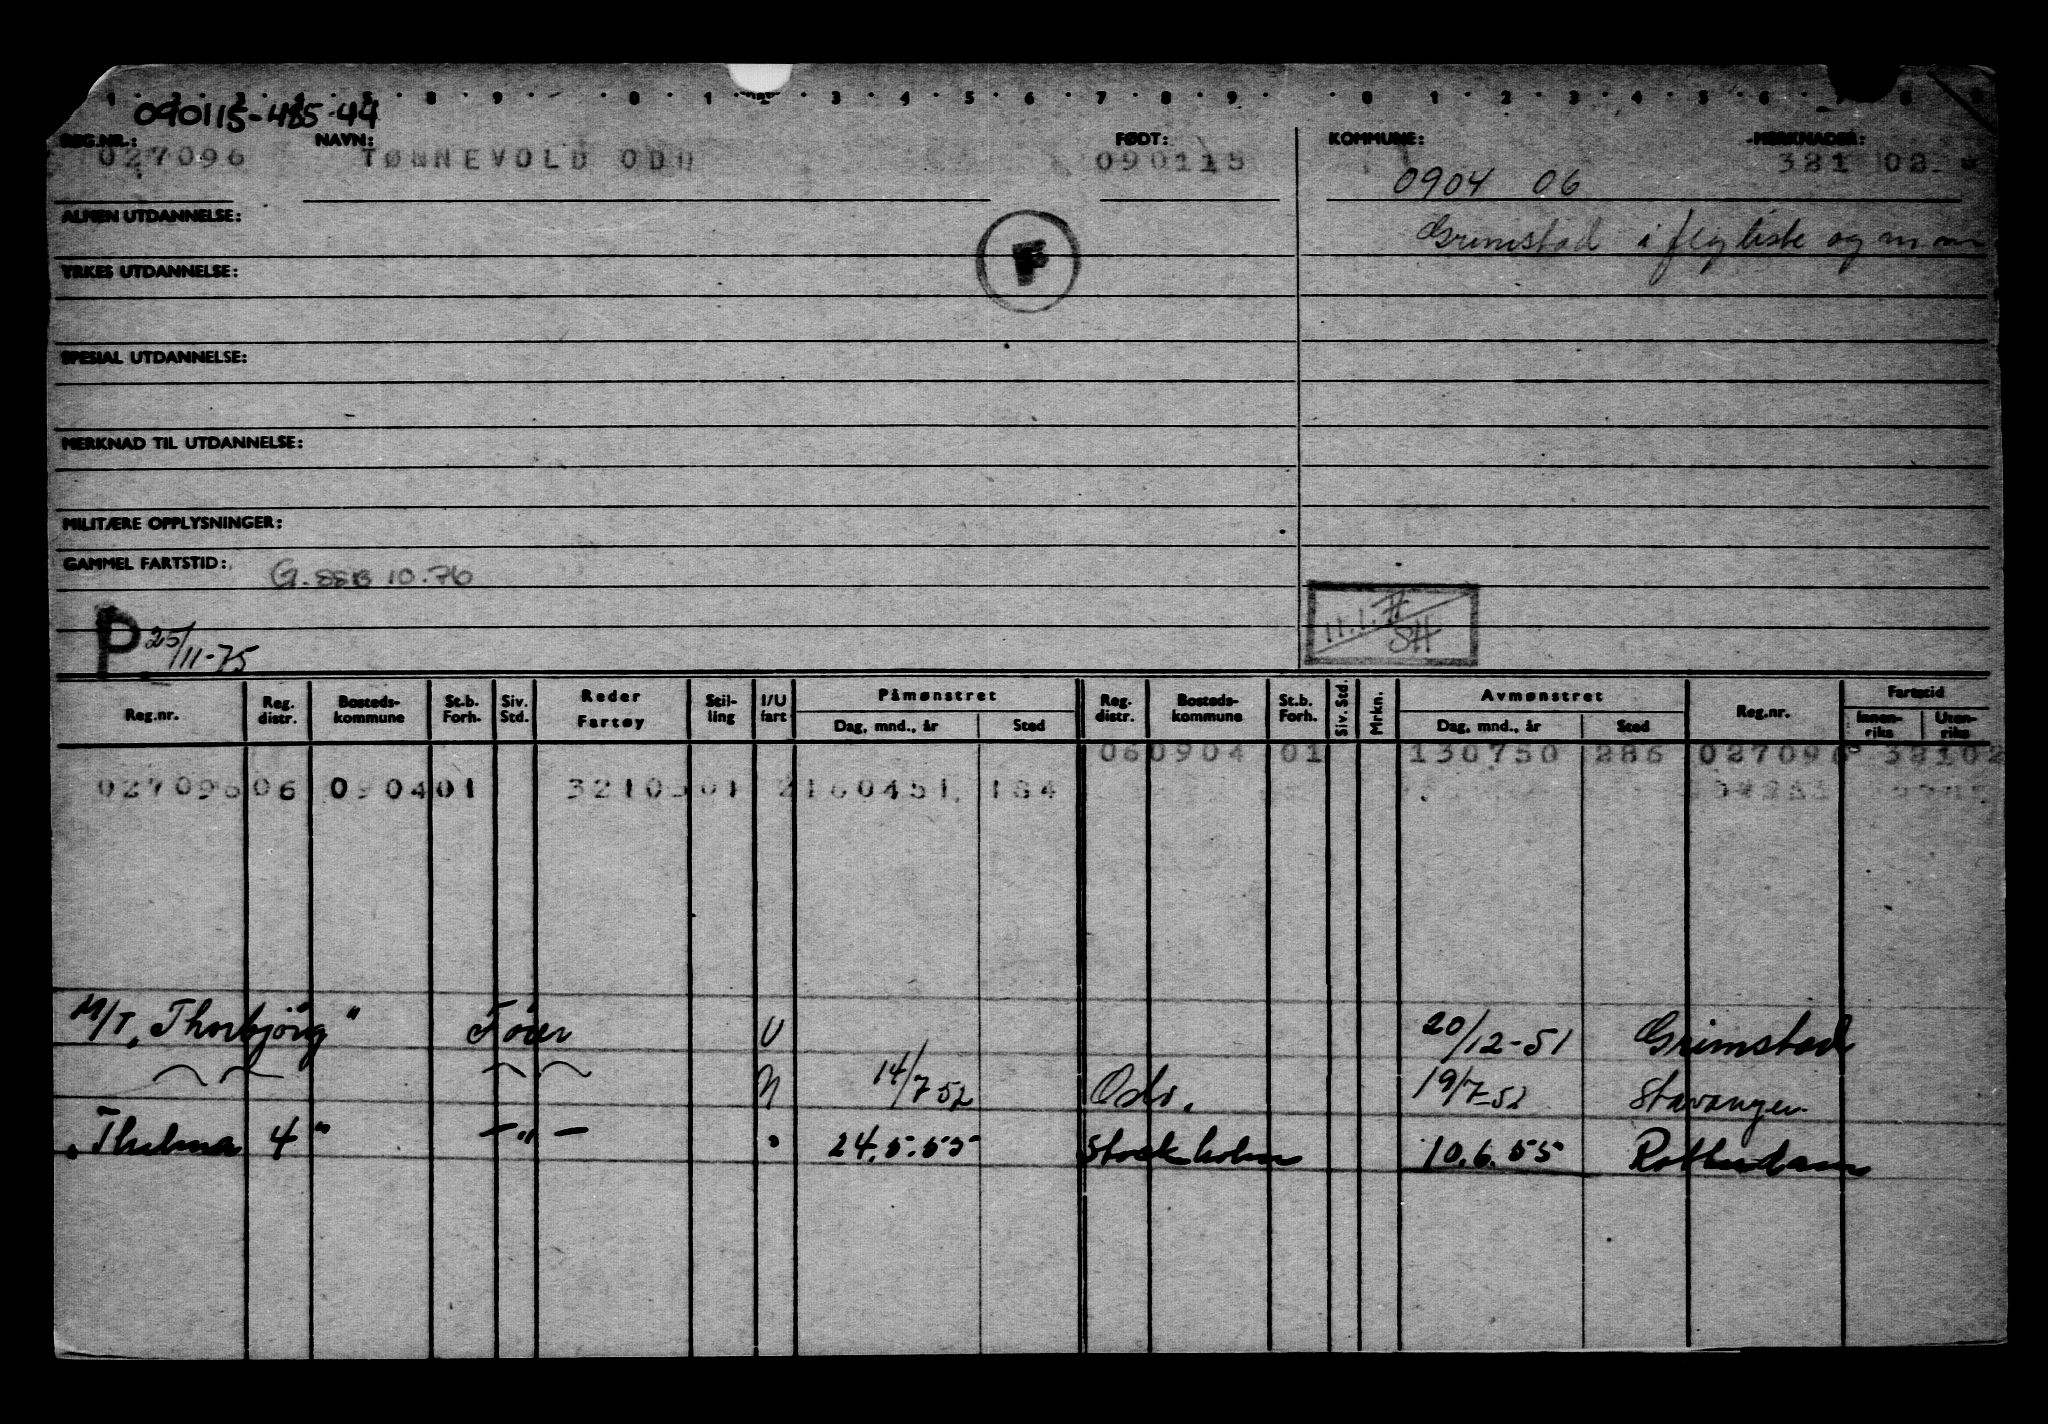 090115-485-44
REG.NR.: NAVN: FØDT: KOMMUNE: MERKNADER:
027096 TØNNEVOLD ODD 090115 0904 06 321 02
ALMEN UTDANNELSE: Grimstad i flg liste og m m
YRKES UTDANNELSE:
F
SPESIAL UTDANNELSE:
MERKNAD TIL UTDANNELSE:
MILITÆRE OPPLYSNINGER:
GAMMEL FARTSTID: G. SSB 10.76
P 25/11-75 11.1. SH
Reg.nr. Reg. distr. Bosteds-kommune St.b. Forh. Siv. Std. Reder Fartøy Stil-ling I/U fart Påmønstret Dag, mnd., år Sted Reg. distr. Bosteds-kommune St.b. Forh. Siv. Std. Mrkn. Avmønstret Dag, mnd., år Sted Reg.nr. Fartstid Innen-riks Uten-riks
060904 01 130750 286 027096 32102
027096 06 0904 01 32105 01 2 160451 184
M/T „Thorbjörg" Fører U 20/12-51 Grimstad
N 14/7 52 Oslo. 19/7-52 Stavanger
„Thelma 4" -"- " 24.5.55 Stockholm 10.6.55 Rotterdam